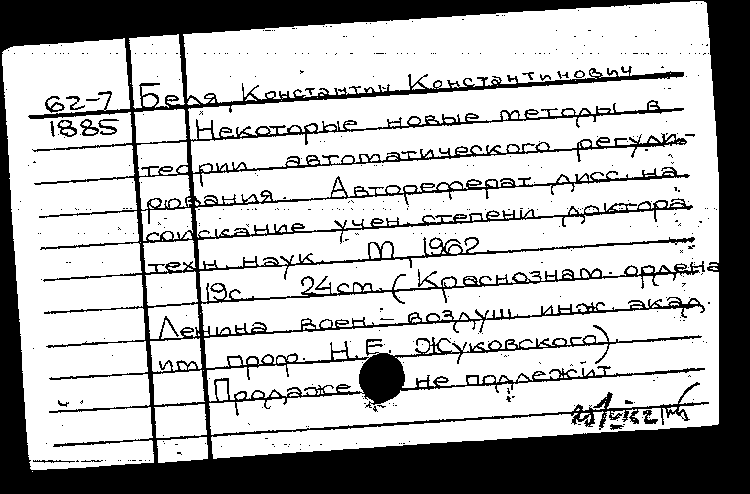 62-7 Беля, Константин Константинович
1885 Некоторые новые методы в
теории автоматического регули-
рования. Автореферат дисс. на
соискание учен. степени доктора
техн. наук. М, 1962
19с. 24см. (Краснознам. ордена
Ленина воен.-воздуш. инж. акад.
им. проф. Н.Е. Жуковского)
Продаже не подлежит.